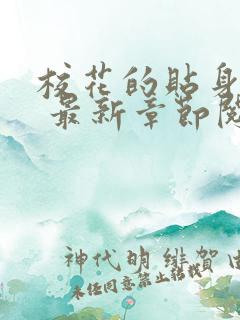 校花的贴身
最新章节阅
神代明 绯贺
未经同意禁止转载